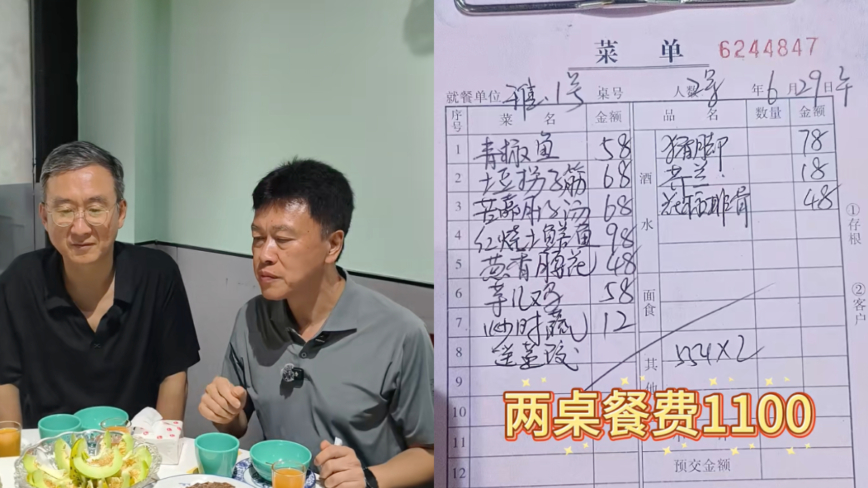 菜 单 6244847
就餐单位 雅1号 桌号 人数 年6月29日午
序号 菜 名 金额 品 名 数量 金额
1 青椒鱼 58 猪脚 78
2 土豆拐子筋 68 酒 18
3 苦郭肚子汤 68 水 排骨 48
4 红烧土鳝鱼 98
5 葱香腰花 48
6 芋儿鸡 58 面食
7 炒时蔬 12
8 其他 554×2
9
10
11
12 预交金额
①存根
②客户
两桌餐费1100